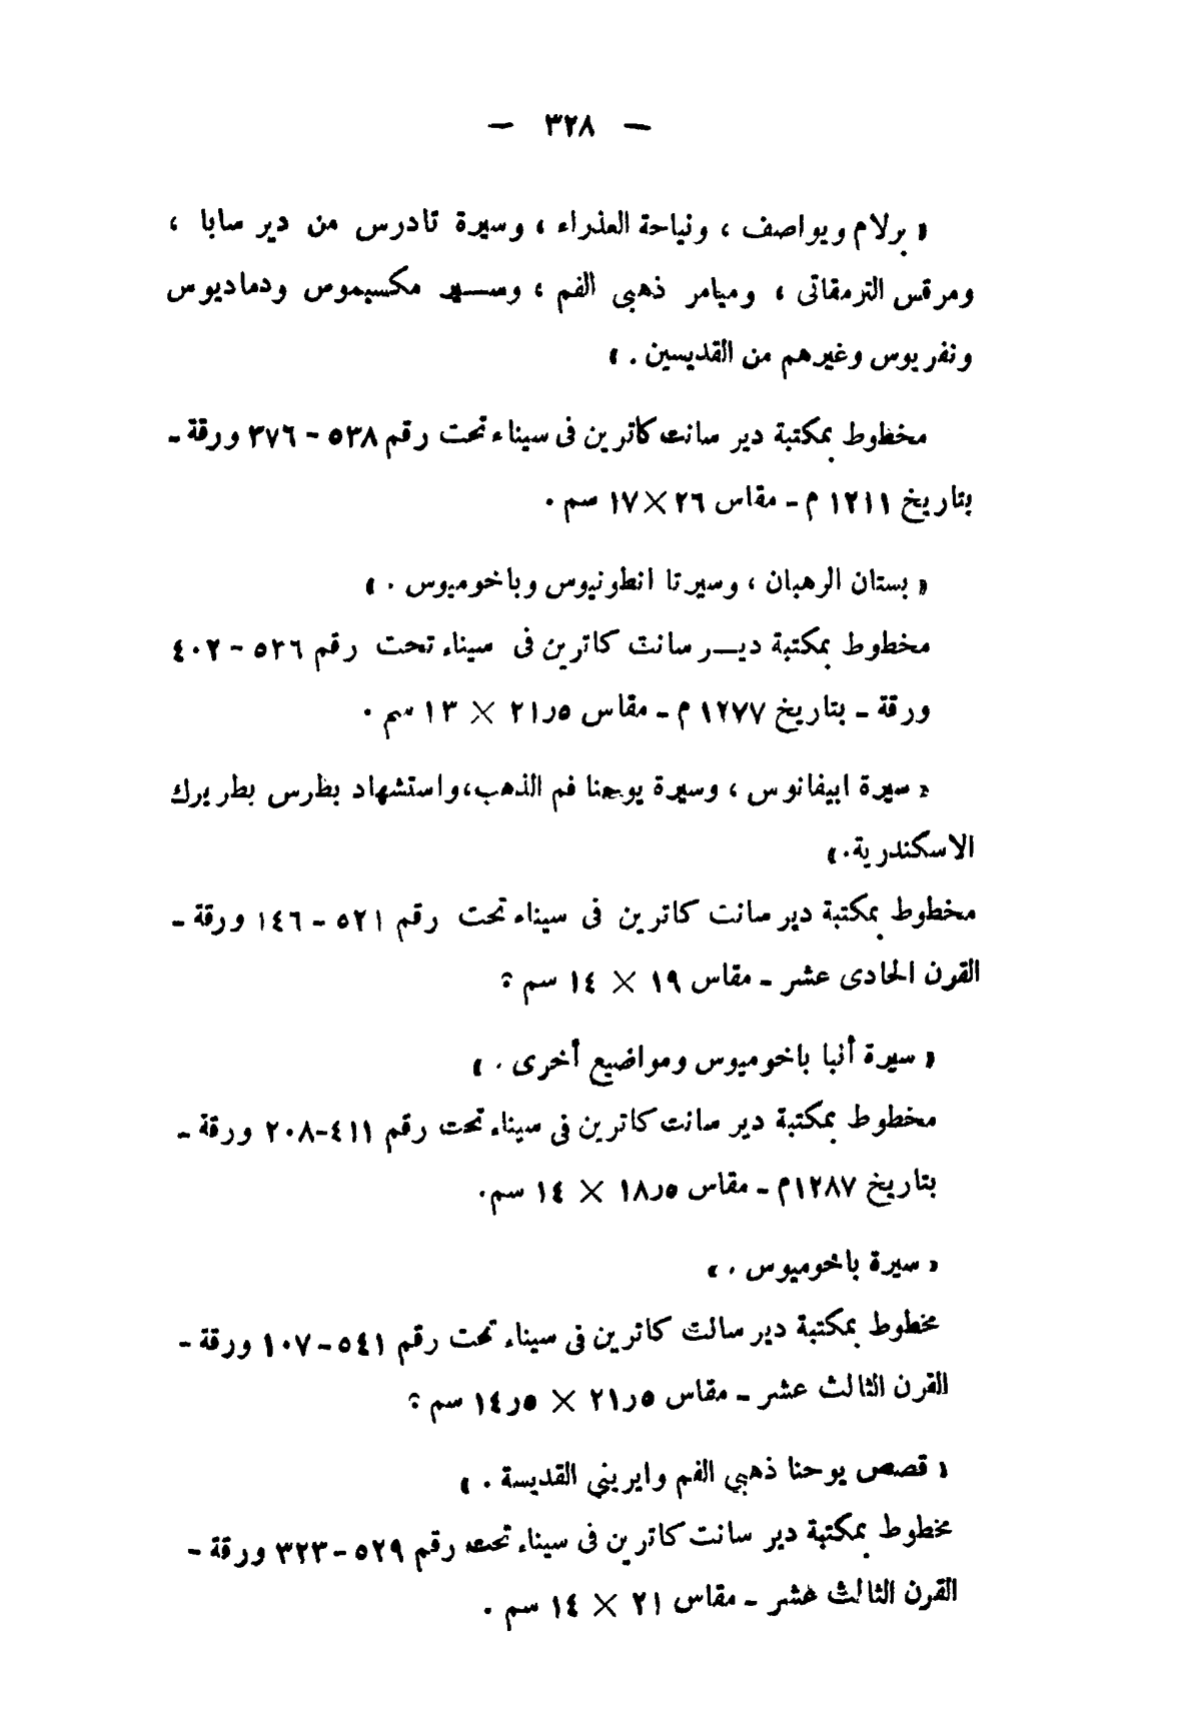 — ٣٢٨ —
« برلام ويواصف ، ونياحة العذراء ، وسيرة تادرس من دير سابا ،
ومرقس الترمقاتى ، وميامر ذهبى الفم ، وسير مكسيموس ودماديوس
ونفريوس وغيرهم من القديسين . »
مخطوط بمكتبة دير سانت كاترين فى سيناء تحت رقم ٥٣٨ - ٣٧٦ ورقة -
بتاريخ ١٢١١ م - مقاس ٢٦ × ١٧ سم .
« بستان الرهبان ، وسيرتا انطونيوس وباخوميوس . »
مخطوط بمكتبة ديــر سانت كاترين فى سيناء تحت رقم ٥٢٦ - ٤٠٢
ورقة - بتاريخ ١٢٧٧ م - مقاس ٢١٫٥ × ١٣ سم .
« سيرة ابيفانوس ، وسيرة يوحنا فم الذهب، واستشهاد بطرس بطريرك
الاسكندرية. »
مخطوط بمكتبة دير سانت كاترين فى سيناء تحت رقم ٥٢١ - ١٤٦ ورقة -
القرن الحادى عشر - مقاس ١٩ × ١٤ سم .
« سيرة أنبا باخوميوس ومواضيع أخرى . »
مخطوط بمكتبة دير سانت كاترين فى سيناء تحت رقم ٤١١-٢٠٨ ورقة -
بتاريخ ١٢٨٧م - مقاس ١٨٫٥ × ١٤ سم.
« سيرة باخوميوس . »
مخطوط بمكتبة دير سانت كاترين فى سيناء تحت رقم ٥٤١ - ١٠٧ ورقة -
القرن الثالث عشر - مقاس ٢١٫٥ × ١٤٫٥ سم .
« قصص يوحنا ذهبي الفم وايريني القديسة . »
مخطوط بمكتبة دير سانت كاترين فى سيناء تحت رقم ٥٢٩ - ٣٢٣ ورقة -
القرن الثالث عشر - مقاس ٢١ × ١٤ سم .